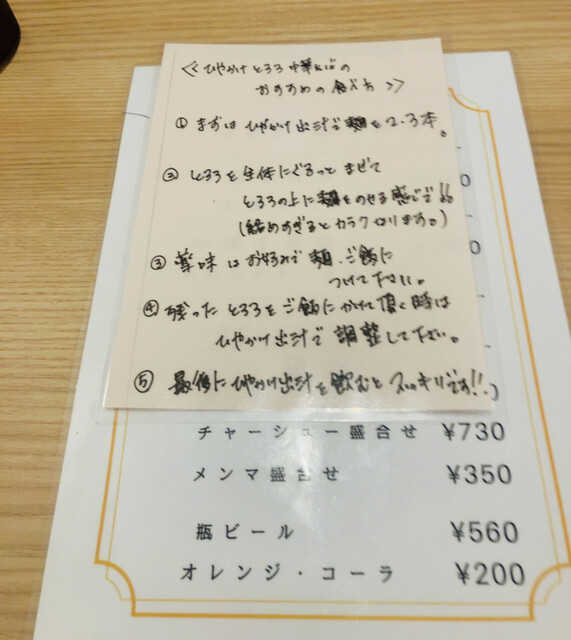 ≪ひやかけとろろ中華そばの
おすすめの食べ方≫
① まずはひやかけ出汁で麺を2.3本。
② とろろを全体にぐるっとまぜて
とろろの上に麺をのせる感じで!!
(絡めすぎるとカラくなります。)
③ 薬味はお好みで麺、ご飯に
つけて下さい。
④ 残ったとろろをご飯にかけて頂く時は
ひやかけ出汁で調整して下さい。
⑤ 最後にひやかけ出汁を飲むとスッキリです!!
チャーシュー盛合せ ¥730
メンマ盛合せ ¥350
瓶ビール ¥560
オレンジ・コーラ ¥200